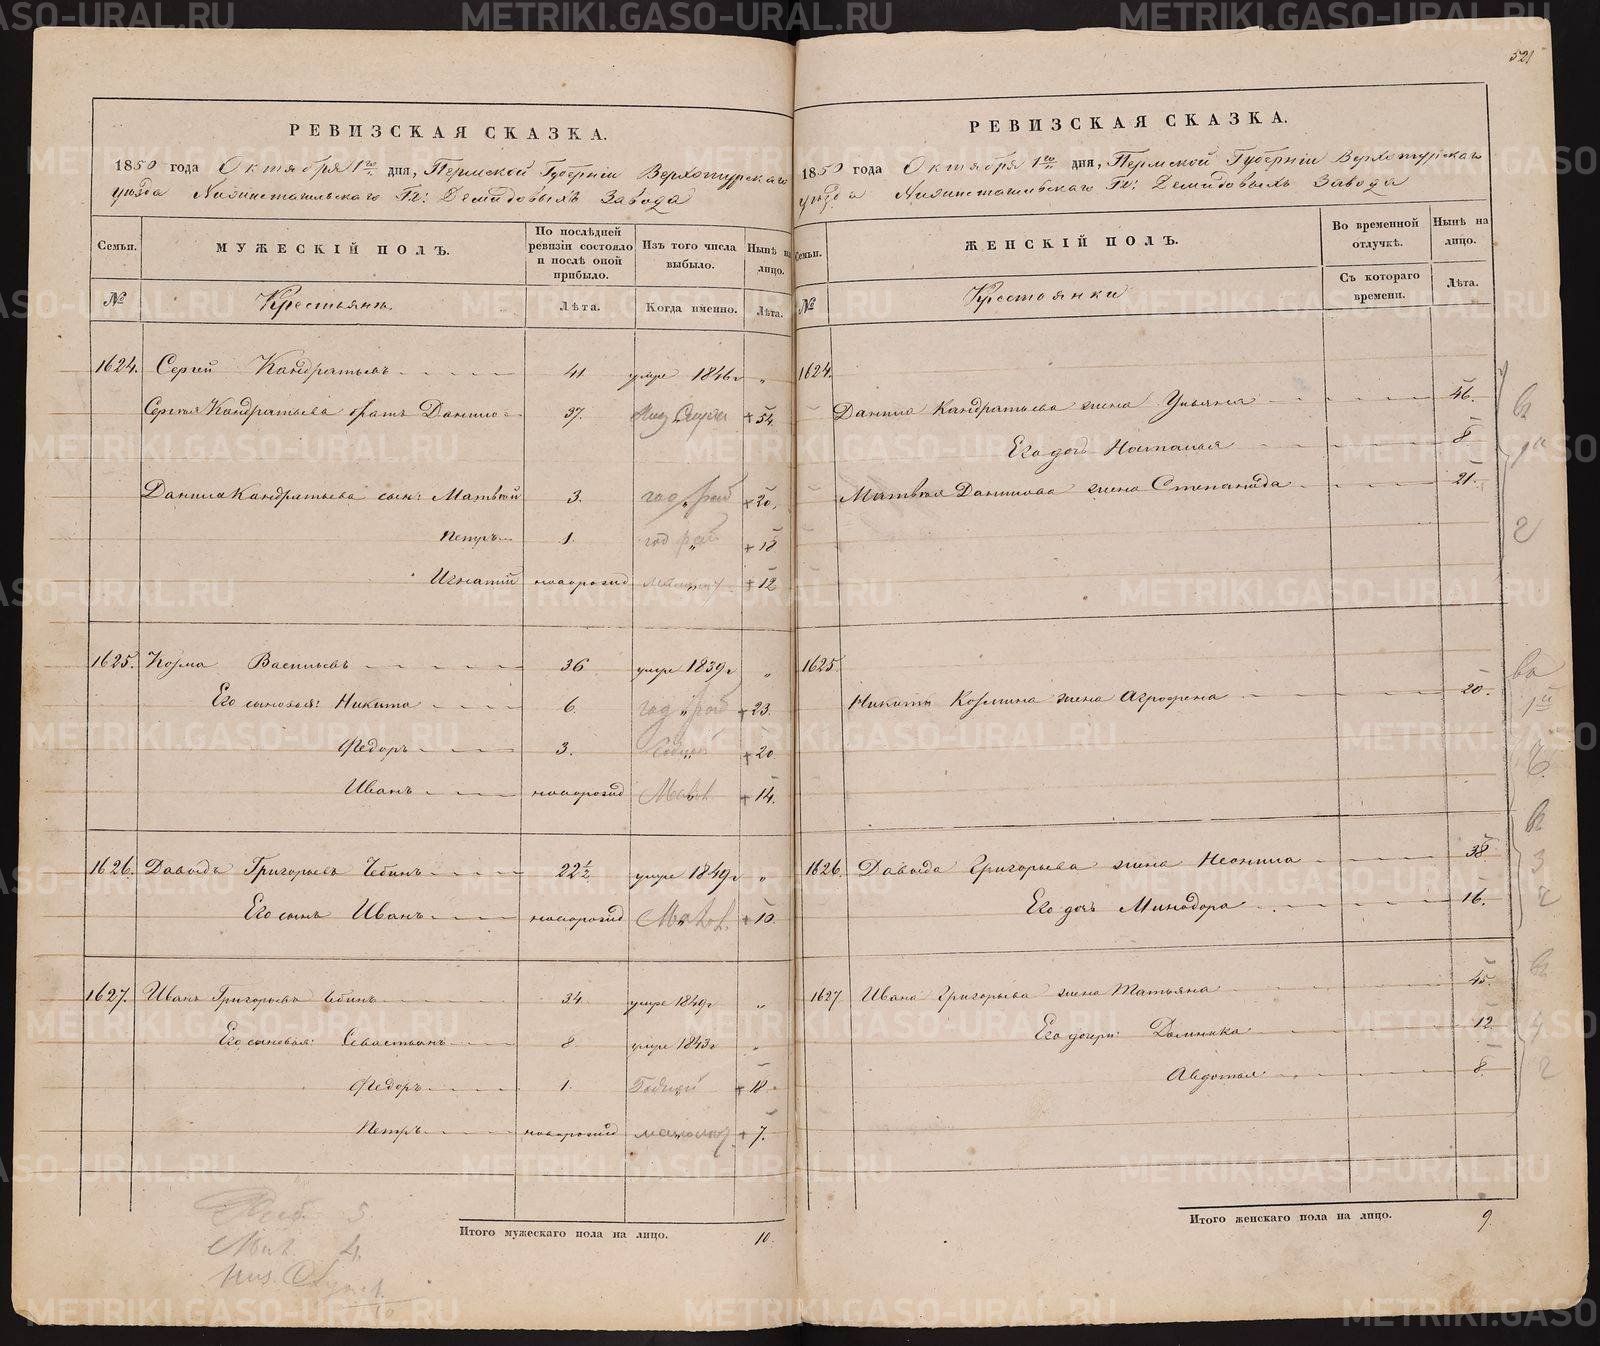 521
РЕВИЗСКАЯ СКАЗКА.
1850 года Октября 1го дня, Пермской Губерніи Верхотурскаго
уѣзда Нижнетагильскаго Гг: Демидовыхъ Завода
Семьи.
МУЖЕСКІЙ ПОЛЪ.
По послѣдней ревизіи состояло и послѣ оной прибыло.
Изъ того числа выбыло.
Нынѣ на лицо.
№
Крестьянъ
Лѣта.
Когда именно.
Лѣта.
1624. Сергей Кандратьевъ 41 умре 1846г "
Сергея Кандратьева братъ Данило 37. + 54.
Данила Кандратьева сын: Матвей 3. год рай + 20.
Петръ 1. год рай + 18
Игнатий новорожд + 12
1625. Козма Васильевъ 36 умре 1839г "
Его сыновья: Никита 6. год рай + 23.
Федоръ 3. Годный + 20
Иванъ новорожд Малол + 14.
1626. Давыдъ Григорьевъ Чебинъ 22½ умре 1849г "
Его сынъ Иванъ новорожд Малол. + 10.
1627. Иванъ Григорьевъ Чебинъ 34 умре 1849г "
Его сыновья: Севастьянъ 8 умре 1843г "
Федоръ 1. Годный + 18
Петръ новорожд малолет + 7.
Итого мужескаго пола на лицо. 10.
5.
Мал. 4.
РЕВИЗСКАЯ СКАЗКА.
1850 года Октября 1го дня, Пермской Губерніи Верхотурскаго
уѣзда Нижнетагильскаго Гг: Демидовыхъ Завода
Семьи.
ЖЕНСКІЙ ПОЛЪ.
Во временной отлучкѣ.
Нынѣ на лицо.
№
Крестьянки
Съ котораго времени.
Лѣта.
1624.
Данила Кандратьева жена Ульяна 46.
Его дочь Наталья 8
Матвея Данилова жена Степанида 21.
1625
Никиты Козмина жена Агрофена 20.
1626. Давыда Григорьева жена Неонила 38
Его дочь Минодора 16.
1627 Ивана Григорьева жена Татьяна 45.
Его дочери: Домника 12
Авдотья 8.
Итого женскаго пола на лицо. 9.
METRIKI.GASO-URAL.RU